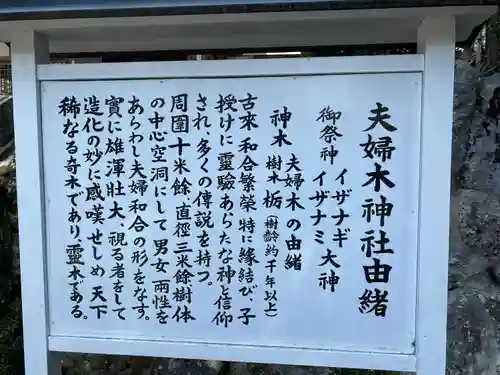 夫婦木神社由緒
御祭神 イザナギ大神
イザナミ
神木 夫婦木の由緒
樹木 栃(樹齢約千年以上)
古來和合繁榮特に縁結び、子
授けに靈驗あらたな神と信仰
され、多くの傳説を持つ。
周圍十米餘、直徑三米餘樹体
の中心空洞にして男女両性を
あらわし夫婦和合の形をなす。
實に雄渾壯大、視る者をして
造化の妙に感嘆せしめ天下
稀なる奇木であり、靈木である。